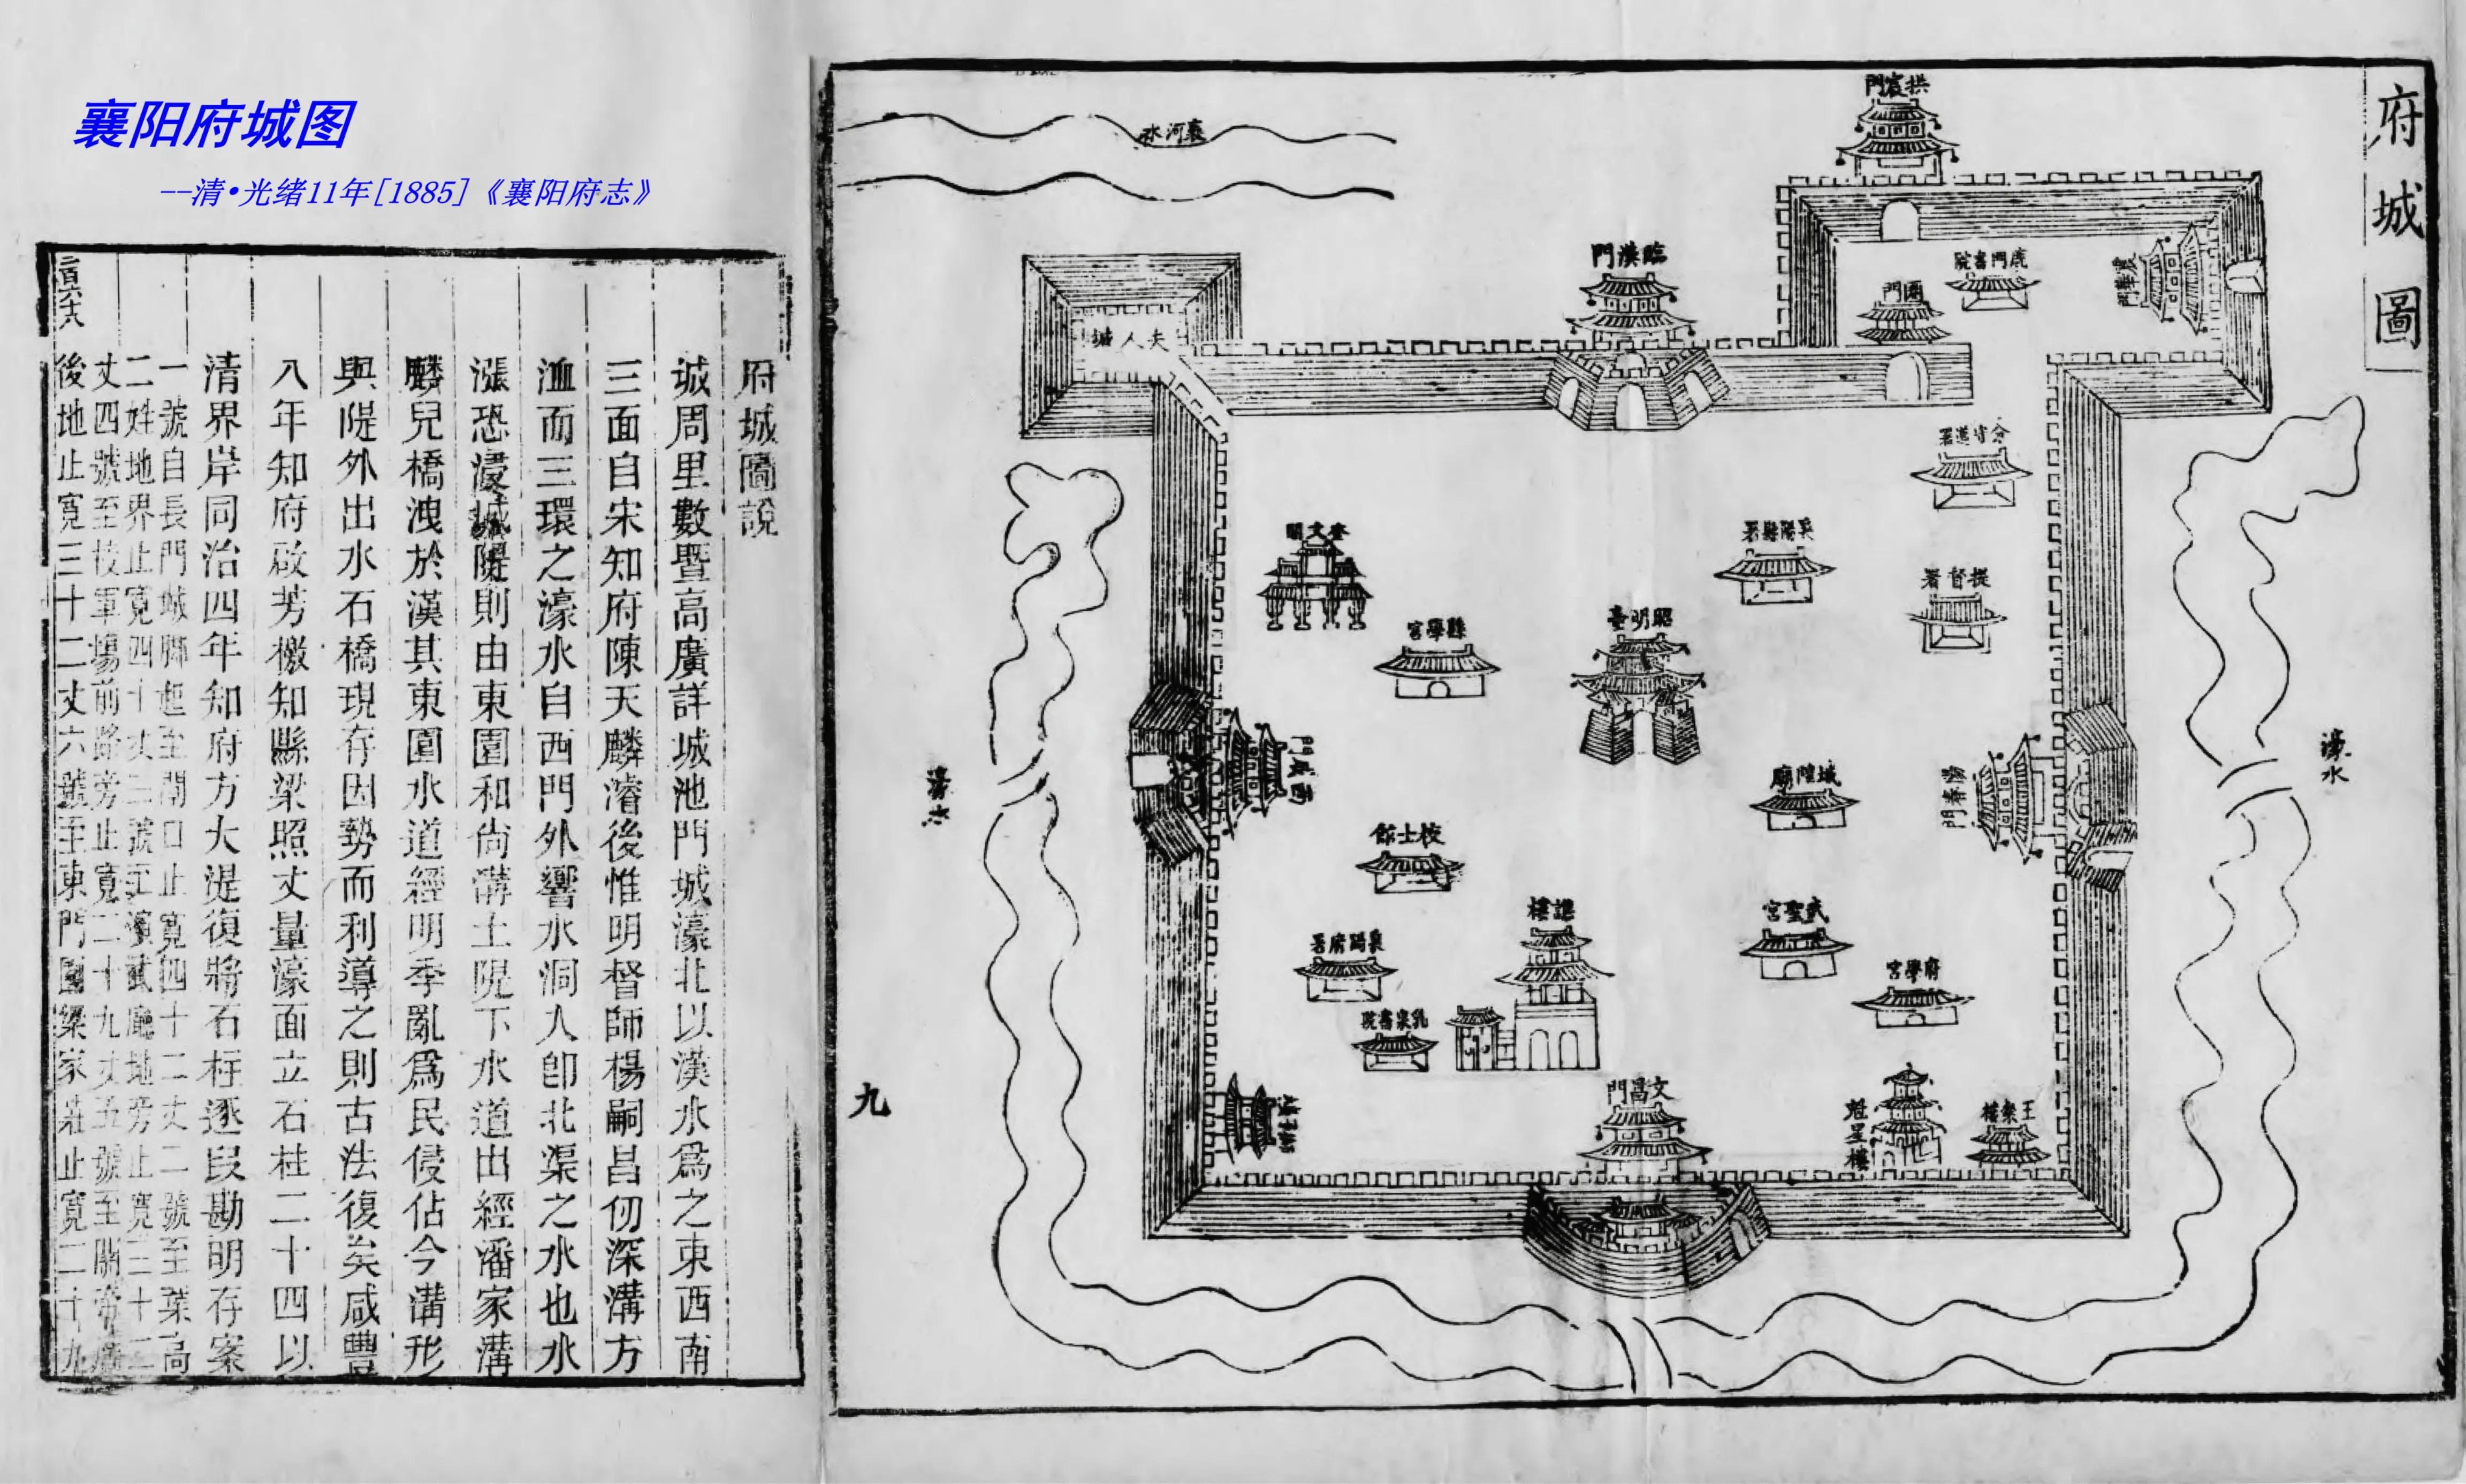 襄阳府城图
--清•光绪11年[1885]《襄阳府志》
府城圖
拱宸門
襄河水
臨漢門
鹿門書院
震華門
閘門
夫人城
分守道署
襄陽縣署
提督署
奎文閣
縣學宮
昭明臺
西成門
濠水
濠水
城隍廟
陽春門
校士館
譙樓
武聖宮
襄陽府署
府學宮
文昌門
魁星樓
王粲樓
九
府城圖說
城周里數暨高廣詳城池門城濠北以漢水爲之東西南
三面自宋知府陳天麟濬後惟明督師楊嗣昌仞深溝方
洫而三環之濠水自西門外響水洞入卽北渠之水也水
漲恐浸城隄則由東園和尙溝土隄下水道出經潘家溝
麟兒橋洩於漢其東園水道經明季亂爲民侵佔今溝形
與隄外出水石橋現存因勢而利導之則古法復矣咸豐
八年知府啟芳檄知縣梁照丈量濠面立石柱二十四以
清界岸同治四年知府方大湜復將石柱逐段勘明存案
一號自長門城腳起至閘口止寬四十二丈二號至葉高
二姓地界止寬四十丈三號至演武廳地旁止寬三十二
丈四號至校軍場前路旁止寬二十九丈五號至關帝廟
後地止寬三十二丈六號至東門園梁家莊止寬二十九
二百六十八